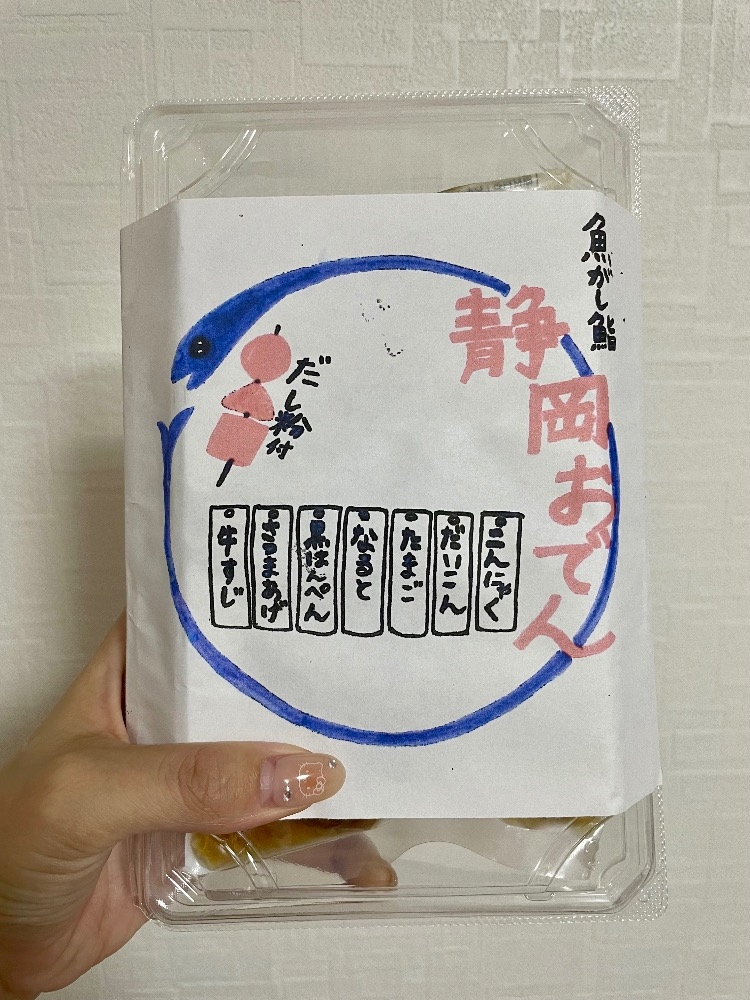 魚がし鮨
静岡おでん
だし粉付
こんにゃく
だいこん
たまご
なると
黒はんぺん
さつまあげ
牛すじ